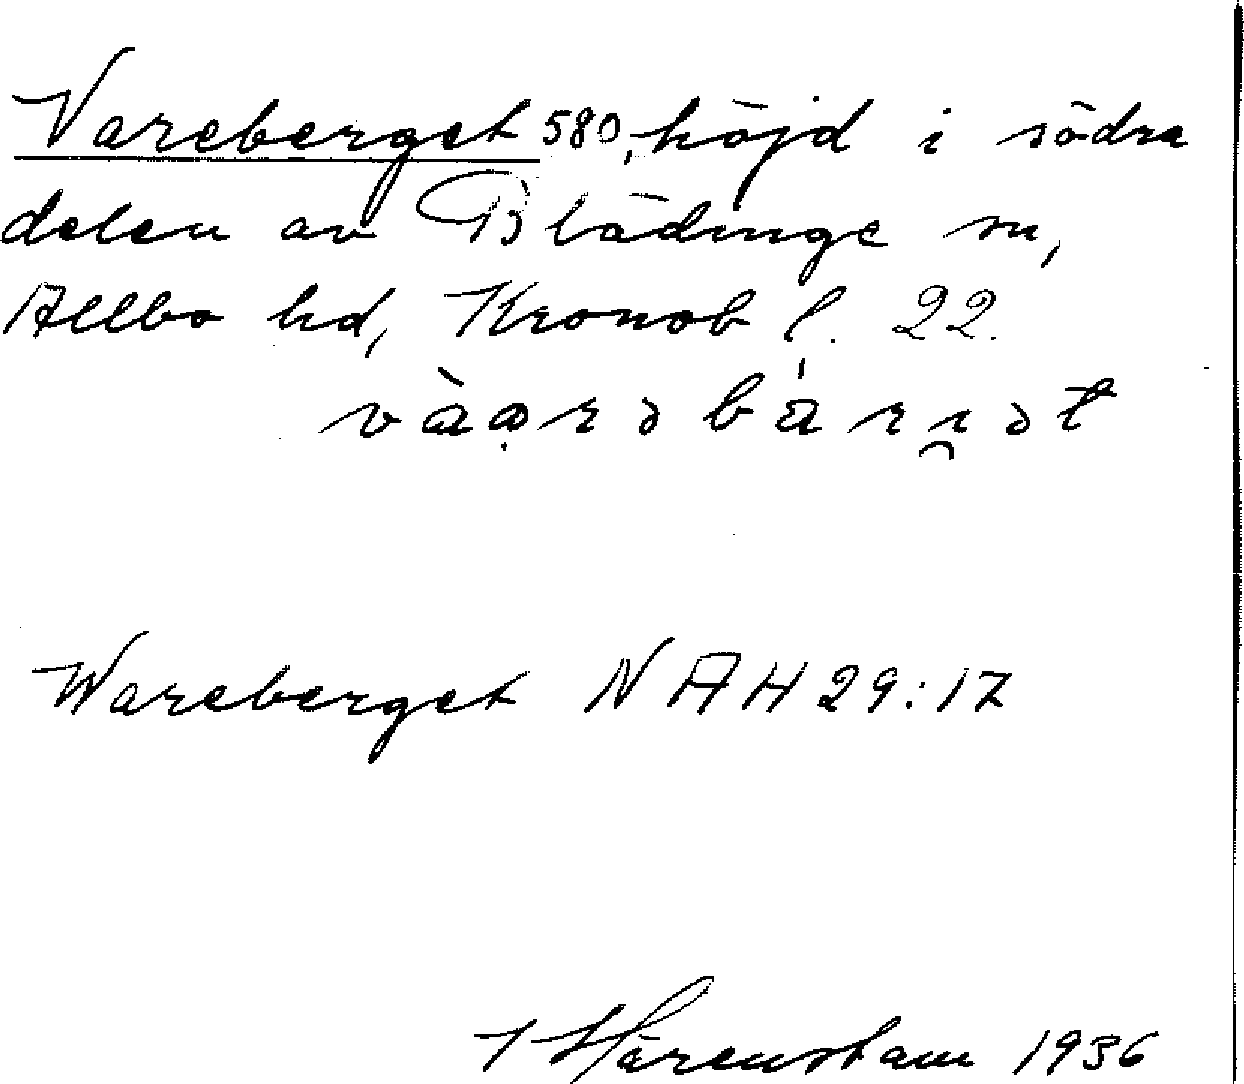 Vareberget 580, höjd i södra
delen av Blädinge sn,
Allbo hd, Kronob l. 22.
Wareberget NAH 29:17
Härenstam 1936